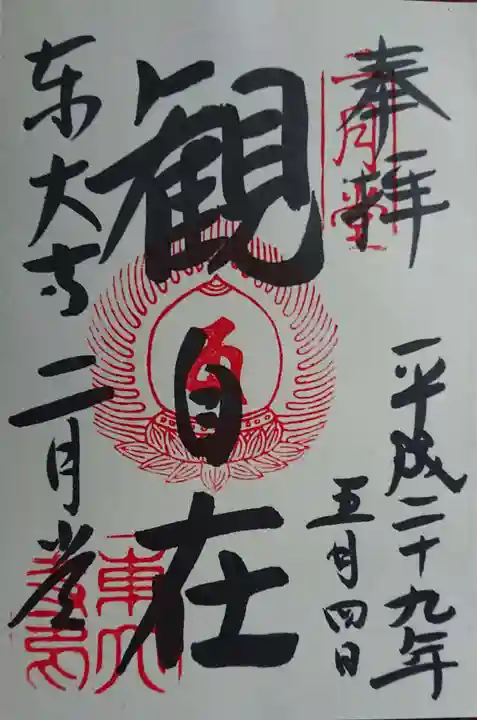 奉拝
二月堂
平成二十九年
五月四日
観自在
東大寺二月堂